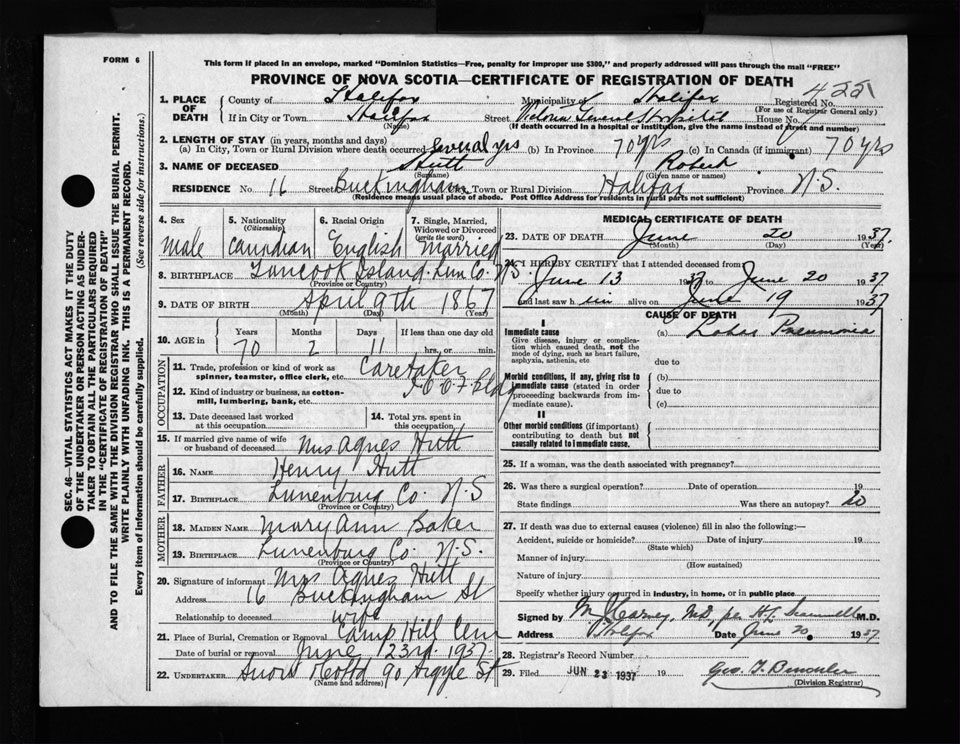 FORM 6
This form if placed in an envelope, marked "Dominion Statistics—Free, penalty for improper use $300," and properly addressed will pass through the mail "FREE"
PROVINCE OF NOVA SCOTIA—CERTIFICATE OF REGISTRATION OF DEATH
1. PLACE OF DEATH
County of Halifax Municipality of Halifax Registered No.
(For use of Registrar General only)
If in City or Town Halifax Street Victoria General Hospital House No.
(Name) (If death occurred in a hospital or institution, give the name instead of street and number)
2. LENGTH OF STAY (in years, months and days)
(a) In City, Town or Rural Division where death occurred several yrs (b) In Province 70 yrs (c) In Canada (if immigrant) 70 yrs
3. NAME OF DECEASED Hutt Robert
(Surname) (Given name or names)
RESIDENCE No. 16 Street Buckingham City, Town or Rural Division Halifax Province N.S.
(Residence means usual place of abode. Post Office Address for residents in rural parts not sufficient)
4. Sex
male
5. Nationality
(Citizenship)
Canadian
6. Racial Origin
English
7. Single, Married, Widowed or Divorced
(write the word)
Married
8. BIRTHPLACE Tancook Island. Lun Co. N S
(Province or Country)
9. DATE OF BIRTH April 9th 1867
(Month) (Day) (Year)
10. AGE in Years Months Days If less than one day old
70 2 11 hrs., or min.
OCCUPATION
11. Trade, profession or kind of work as spinner, teamster, office clerk, etc. Caretaker
12. Kind of industry or business, as cotton-mill, lumbering, bank, etc. I O O F Bldg
13. Date deceased last worked at this occupation
14. Total yrs. spent in this occupation
15. If married give name of wife or husband of deceased Mrs Agnes Hutt
FATHER
16. NAME Henry Hutt
17. BIRTHPLACE Lunenburg Co. N.S
(Province or Country)
MOTHER
18. MAIDEN NAME Mary Ann Baker
19. BIRTHPLACE Lunenburg Co. N.S.
(Province or Country)
20. Signature of informant Mrs Agnes Hutt
Address 16 Buckingham St
Relationship to deceased wife
21. Place of Burial, Cremation or Removal Camp Hill Cem
Date of burial or removal June 23rd. 1937.
22. UNDERTAKER Snow 90 Argyle St
(Name and address)
MEDICAL CERTIFICATE OF DEATH
23. DATE OF DEATH June 20 1937.
(Month) (Day) (Year)
24. I HEREBY CERTIFY that I attended deceased from
June 13 1937 to June 20 1937
and last saw him alive on June 19 1937
CAUSE OF DEATH
I
Immediate cause
Give disease, injury or complication which caused death, not the mode of dying, such as heart failure, asphyxia, asthenia, etc
(a) Lobar Pneumonia
due to
Morbid conditions, if any, giving rise to immediate cause (stated in order proceeding backwards from immediate cause).
(b)
due to
(c)
II
Other morbid conditions (if important) contributing to death but not causally related to immediate cause.
25. If a woman, was the death associated with pregnancy?
26. Was there a surgical operation? Date of operation 19
State findings Was there an autopsy? no
27. If death was due to external causes (violence) fill in also the following:—
Accident, suicide or homicide? Date of injury 19
(State which)
Manner of injury
(How sustained)
Nature of injury
Specify whether injury occurred in industry, in home, or in public place
Signed by M.D.
Address Halifax Date June 20. 1937.
28. Registrar's Record Number
29. Filed JUN 23 1937 19
(Division Registrar)
SEC. 46—VITAL STATISTICS ACT MAKES IT THE DUTY
OF THE UNDERTAKER OR PERSON ACTING AS UNDER-
TAKER TO OBTAIN ALL THE PARTICULARS REQUIRED
IN THE "CERTIFICATE OF REGISTRATION OF DEATH"
AND TO FILE THE SAME WITH THE DIVISION REGISTRAR WHO SHALL ISSUE THE BURIAL PERMIT.
WRITE PLAINLY WITH UNFADING INK. THIS IS A PERMANENT RECORD.
Every item of information should be carefully supplied. (See reverse side for instructions.)